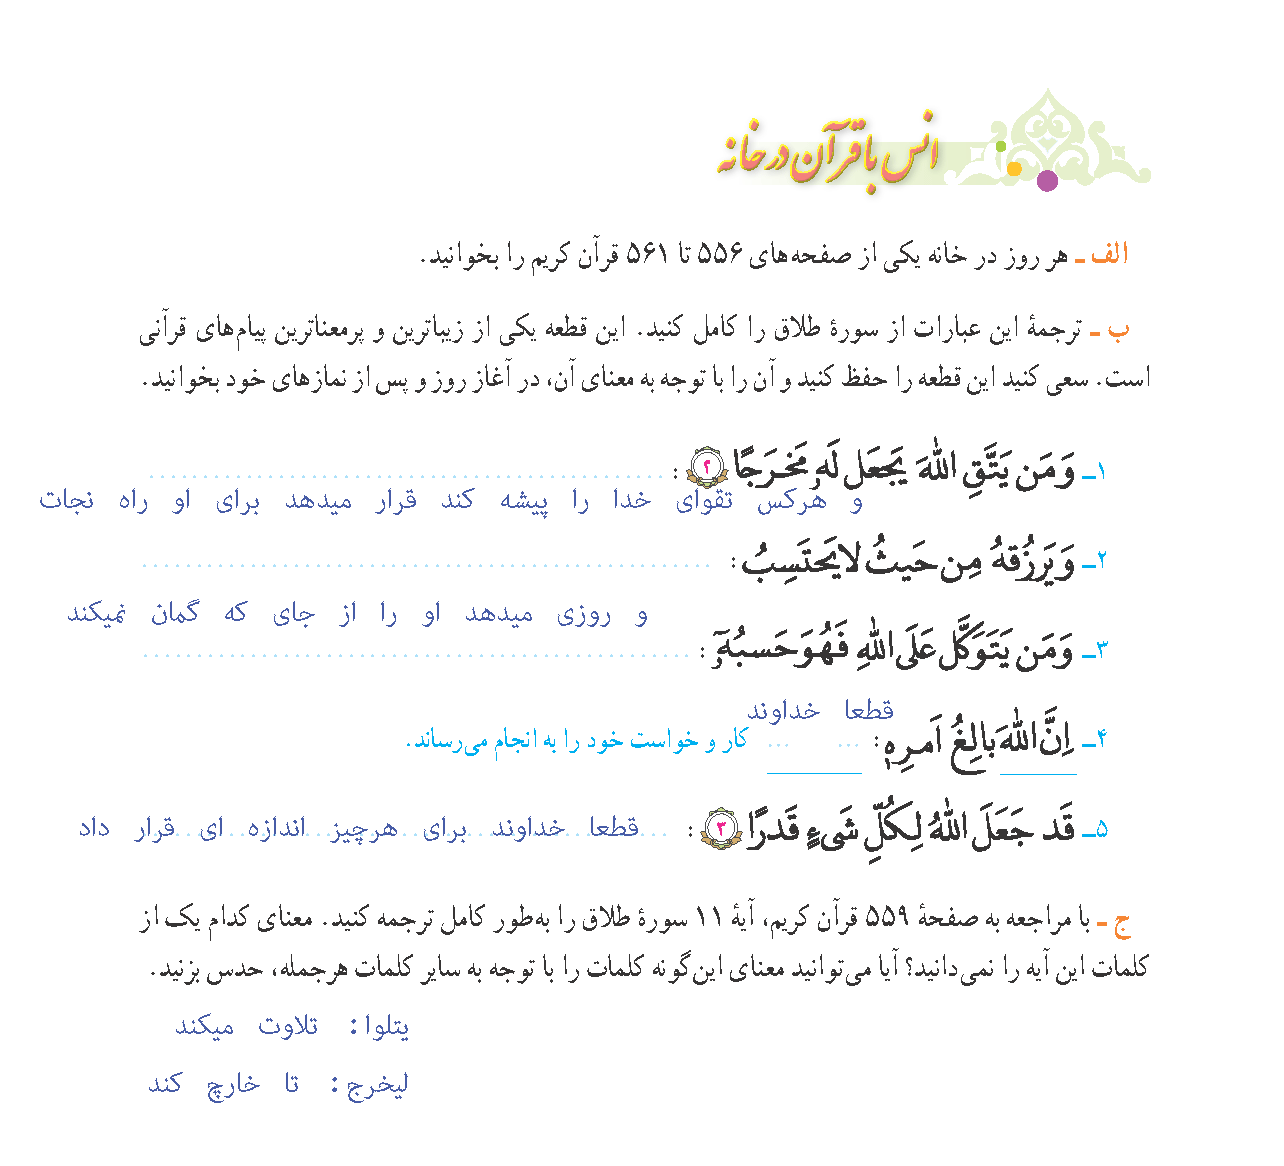 انس با قرآن در خانه
الف ـ هر روز در خانه یکی از صفحه‌های ۵۵۶ تا ۵۶۱ قرآن کریم را بخوانید.
ب ـ ترجمهٔ این عبارات از سورهٔ طلاق را کامل کنید. این قطعه یکی از زیباترین و پرمعناترین پیام‌های قرآنی
است. سعی کنید این قطعه را حفظ کنید و آن را با توجه به معنای آن، در آغاز روز و پس از نمازهای خود بخوانید.
۱ـ وَ مَن يَتَّقِ اللّٰهَ يَجعَل لَهٗ مَخـرَجًا ۲ :
و هرکس تقوای خدا را پیشه کند قرار میدهد برای او راه نجات
۲ـ وَ يَرزُقهُ مِن حَيثُ لا يَحتَسِبُ :
و روزی میدهد او را از جای که گمان نمیکند
۳ـ وَ مَن يَتَوَكَّل عَلَى اللّٰهِ فَهُوَ حَسبُهٗٓ :
قطعا خداوند
۴ـ اِنَّ اللّٰهَ بالِغُ اَمـرِهٖ : ... ... کار و خواست خود را به انجام می‌رساند.
۵ـ قَد جَعَلَ اللّٰهُ لِـكُلِّ شَىءٍ قَدرًا ۳ : قطعا خداوند برای هرچیز اندازه ای قرار داد
ج ـ با مراجعه به صفحهٔ ۵۵۹ قرآن کریم، آیهٔ ۱۱ سورهٔ طلاق را به‌طور کامل ترجمه کنید. معنای کدام یک از
کلمات این آیه را نمی‌دانید؟ آیا می‌توانید معنای این‌گونه کلمات را با توجه به سایر کلمات هرجمله، حدس بزنید.
یتلوا: تلاوت میکند
لیخرج: تا خارج کند